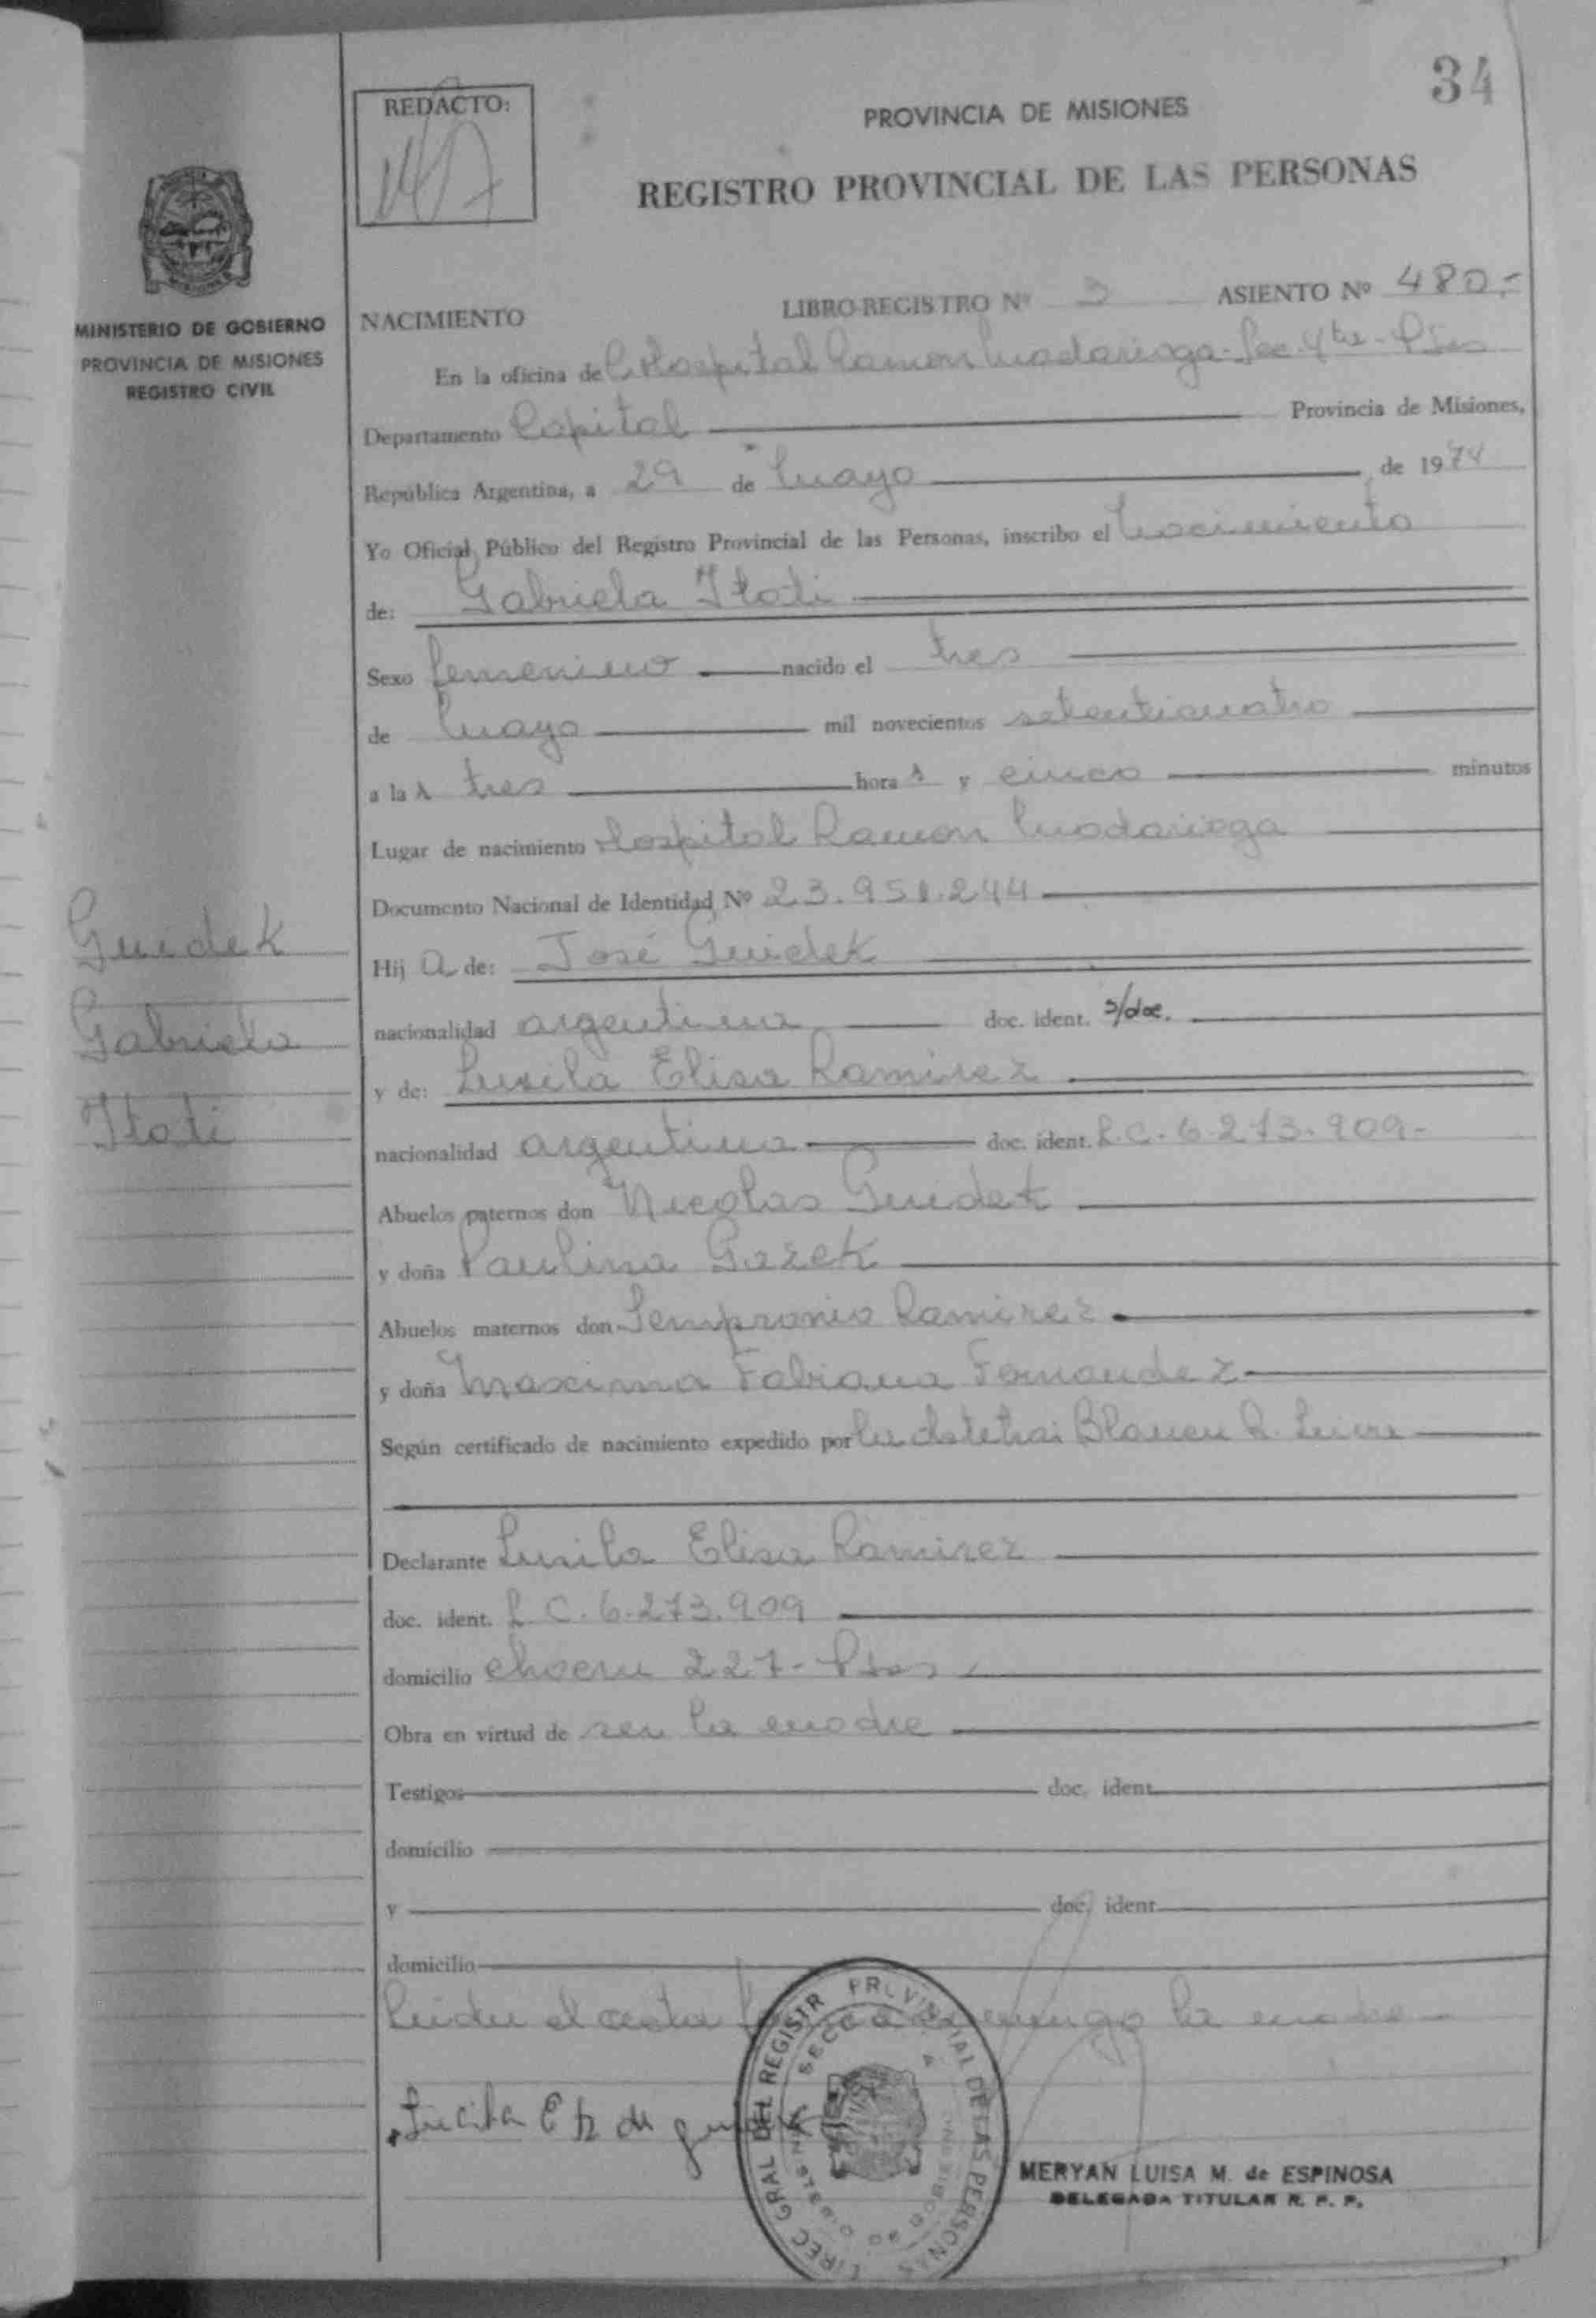 34
REDACTO:
PROVINCIA DE MISIONES
REGISTRO PROVINCIAL DE LAS PERSONAS
MISIONES
MINISTERIO DE GOBIERNO
PROVINCIA DE MISIONES
REGISTRO CIVIL
NACIMIENTO LIBRO-REGISTRO Nº 3 ASIENTO Nº 480.-
En la oficina de Hospital Ramon Madariaga-Sec. 4ta-Pdas
Departamento Capital Provincia de Misiones,
República Argentina, a 29 de mayo de 1974
Yo Oficial Público del Registro Provincial de las Personas, inscribo el nacimiento
de: Gabriela Itati
Sexo femenino nacido el tres
de mayo mil novecientos setenticuatro
a las tres horas y cinco minutos
Lugar de nacimiento Hospital Ramon Madariaga
Documento Nacional de Identidad Nº 23.951.244
Hija de: José Guidek
nacionalidad argentina doc. ident. s/doc.
y de: Lucila Elisa Ramirez
nacionalidad argentina doc. ident. L.C. 6.273.909-
Abuelos paternos don Nicolas Guidek
y doña Paulina Gazek
Abuelos maternos don Sempronio Ramirez
y doña Maxima Fabiana Fernandez
Según certificado de nacimiento expedido por la obstetra: Blanca R.
Declarante Lucila Elisa Ramirez
doc. ident. L C. 6.273.909
domicilio 227- Pdas
Obra en virtud de ser la madre
Testigos doc. ident.
domicilio
y doc. ident.
domicilio
Leida el acta la madre
Lucila E R de
Guidek
Gabriela
Itati
DIREC GRAL DEL REGISTR PROVINCIAL DE LAS PERSONAS
MERYAN LUISA M. de ESPINOSA
DELEGADA TITULAR R. P. P.